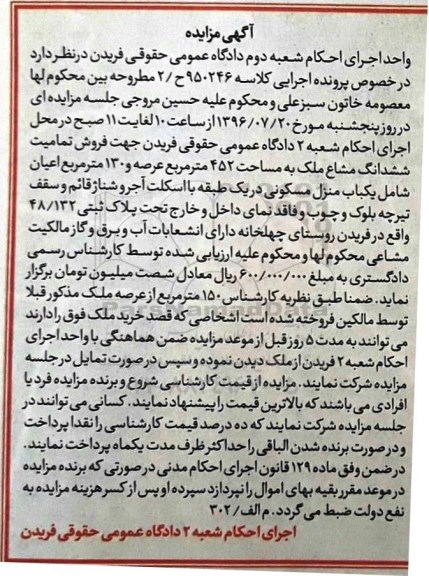 آگهی مزایده
واحد اجرای احکام شعبه دوم دادگاه عمومی حقوقی فریدن در نظر دارد
در خصوص پرونده اجرایی کلاسه ۹۵۰۲۴۶ ح/۲ مطروحه بین محکوم لها
معصومه خاتون سبزعلی و محکوم علیه حسین مروجی جلسه مزایده ای
در روز پنجشنبه مورخ ۱۳۹۶/۰۷/۲۰ از ساعت ۱۰ لغایت ۱۱ صبح در محل
اجرای احکام شعبه ۲ دادگاه عمومی حقوقی فریدن جهت فروش تمامیت
ششدانگ مشاع ملک به مساحت ۴۵۲ مترمربع عرصه و ۱۳۰ مترمربع اعیان
شامل یکباب منزل مسکونی در یک طبقه با اسکلت آجر و شناژ قائم و سقف
تیرچه بلوک و چوب و فاقد نمای داخل و خارج تحت پلاک ثبتی ۴۸/۱۳۲
واقع در فریدن روستای چهلخانه دارای انشعابات آب و برق و گاز مالکیت
مشاعی محکوم لها و محکوم علیه ارزیابی شده توسط کارشناس رسمی
دادگستری به مبلغ ۶۰۰/۰۰۰/۰۰۰ ریال معادل شصت میلیون تومان برگزار
نماید. ضمنا طبق نظریه کارشناس ۱۵۰ مترمربع از عرصه ملک مذکور قبلا
توسط مالکین فروخته شده است اشخاصی که قصد خرید ملک فوق را دارند
می توانند به مدت ۵ روز قبل از موعد مزایده ضمن هماهنگی با واحد اجرای
احکام شعبه ۲ فریدن از ملک دیدن نموده و سپس در صورت تمایل در جلسه
مزایده شرکت نمایند. مزایده از قیمت کارشناسی شروع و برنده مزایده فرد یا
افرادی می باشند که بالاترین قیمت را پیشنهاد نمایند. کسانی می توانند در
جلسه مزایده شرکت نمایند که ده درصد قیمت کارشناسی را نقدا پرداخت
و در صورت برنده شدن الباقی را حداکثر ظرف مدت یکماه پرداخت نمایند.
در ضمن وفق ماده ۱۲۹ قانون اجرای احکام مدنی در صورتی که برنده مزایده
در موعد مقرر بقیه بهای اموال را نپردازد سپرده او پس از کسر هزینه مزایده به
نفع دولت ضبط می گردد. م الف/ ۳۰۲
اجرای احکام شعبه ۲ دادگاه عمومی حقوقی فریدن